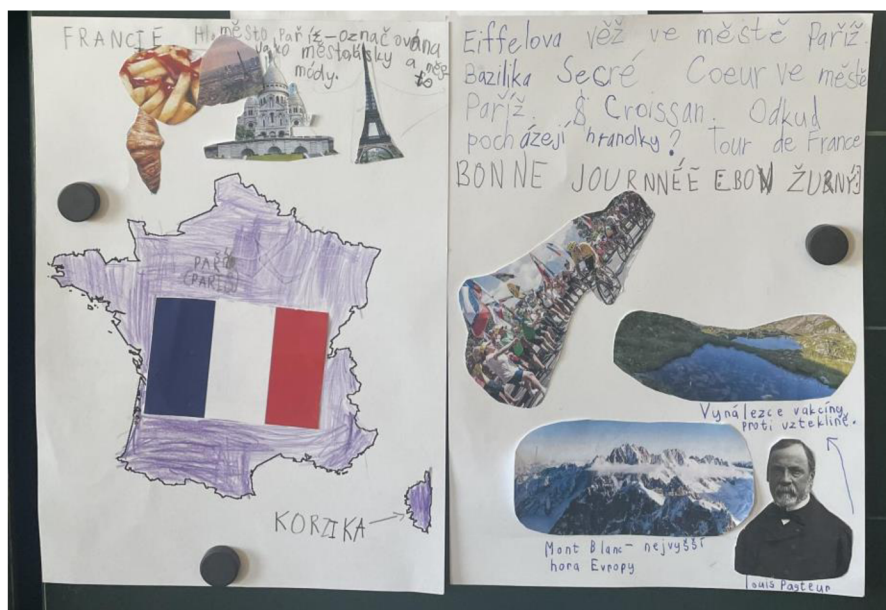 FRANCIE Hl. město Paříž - označována
jako město lásky a měs-
módy. to
PAŘÍŽ
(PARIS)
KORZIKA
Eiffelova věž ve městě Paříž.
Bazilika Secré Coeur ve městě
Paříž. Croissan. Odkud
pocházejí hranolky? Tour de France
BONNE JOURNNÉE [BON ŽURNÝ]
Vynálezce vakcíny
proti vzteklině.
Mont Blanc - nejvyšší
hora Evropy
Louis Pasteur